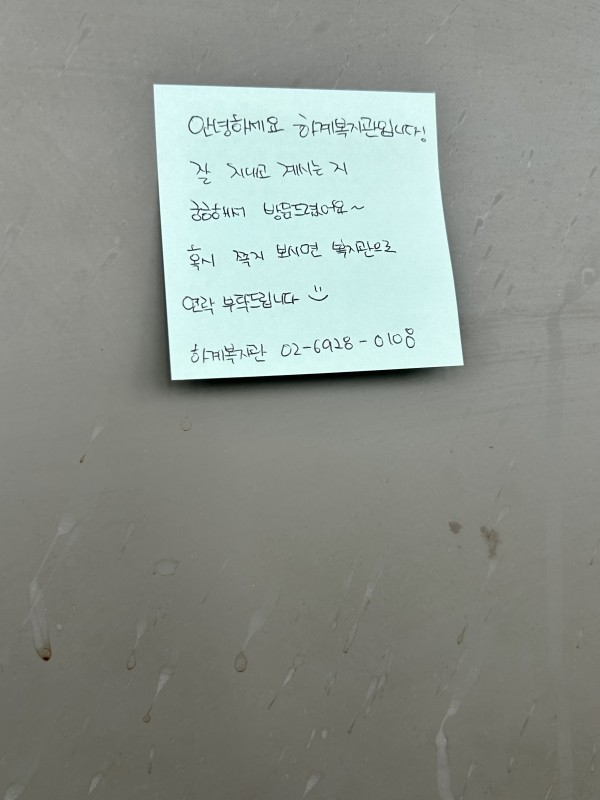 안녕하세요 하계복지관입니다!
잘 지내고 계시는 지
궁금해서 방문드렸어요~
혹시 쪽지 보시면 복지관으로
연락 부탁드립니다 :)
하계복지관 02-6928-0108